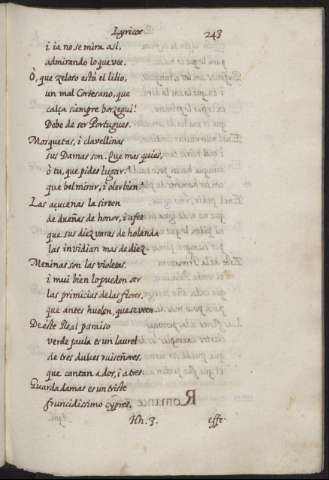 Lyricos 243
i ia no se mira así,
admirando lo que vee.
O, que zeloso está el lilio,
un mal Cortesano, que
calça siempre borzegui!
Debe de ser Portugues.
Mosquetas, i clavellinas
sus Damas son. Que mas quies,
ò tu, que pides lugar?
que bel mirar, i oler bien?
Las açucenas la sirven
de dueñas de honor, i a fee
que sus diez varas de holanda
las invidian mas de diez.
Meninas son las violetas,
i mui bien lo pueden ser
las primicias de las flores,
que antes huelen, que se ven.
De este Real paraiso
verde jaula es un laurel
de tres dulces ruiseñores,
que cantan a dos, i a tres.
Guarda damas es un triste
fruncidissimo çypres,
Hh. 3. esse